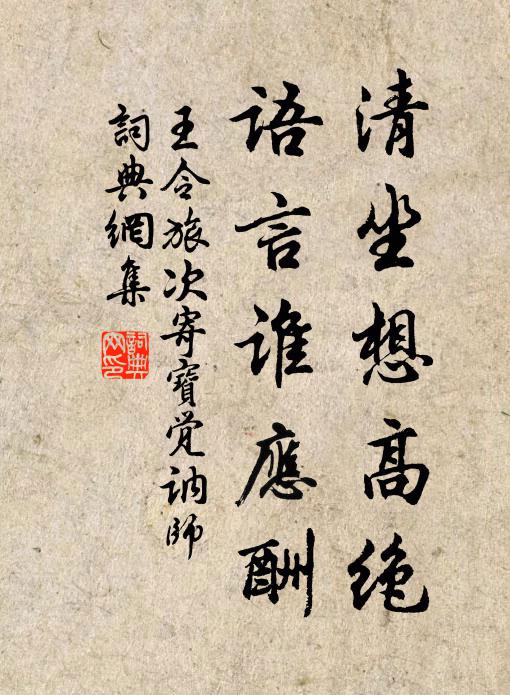 清坐想高绝
语言谁應酬
王令旅次寄寶觉讷師
詞典網集
詞典網印